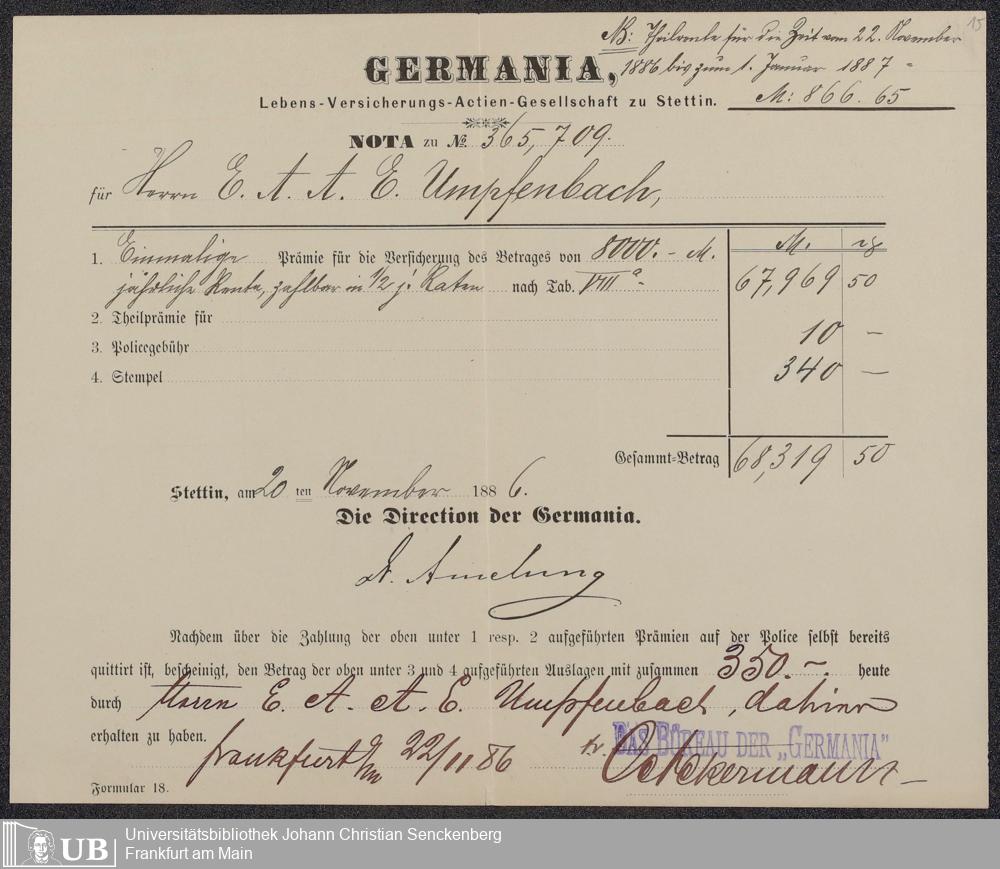 15
NB: Theilrente für die Zeit vom 22. November
1886 bis zum 1. Januar 1887 =
M: 866.65
GERMANIA,
Lebens-Versicherungs-Actien-Gesellschaft zu Stettin.
NOTA zu № 365,709.
für Herrn E. A. A. E. Umpfenbach,
M. ₰
1. Einmalige Prämie für die Versicherung des Betrages von 8000.- M.
jährliche Rente, zahlbar in 1/2 j. Raten nach Tab. VIII a 67,969 50
2. Theilprämie für
3. Policegebühr 10 —
4. Stempel 340 —
Gesammt-Betrag 68,319 50
Stettin, am 20 ten November 1886.
Die Direction der Germania.
Dr. Amelung
Nachdem über die Zahlung der oben unter 1 resp. 2 aufgeführten Prämien auf der Police selbst bereits
quittirt ist, bescheinigt, den Betrag der oben unter 3 und 4 aufgeführten Auslagen mit zusammen 350.-. heute
durch Herrn E. A. A. E. Umpfenbach, dahier
erhalten zu haben.
Frankfurt a/m 22/11 86
DAS BÜREAU DER „GERMANIA"
Formular 18.
UB
Universitätsbibliothek Johann Christian Senckenberg
Frankfurt am Main